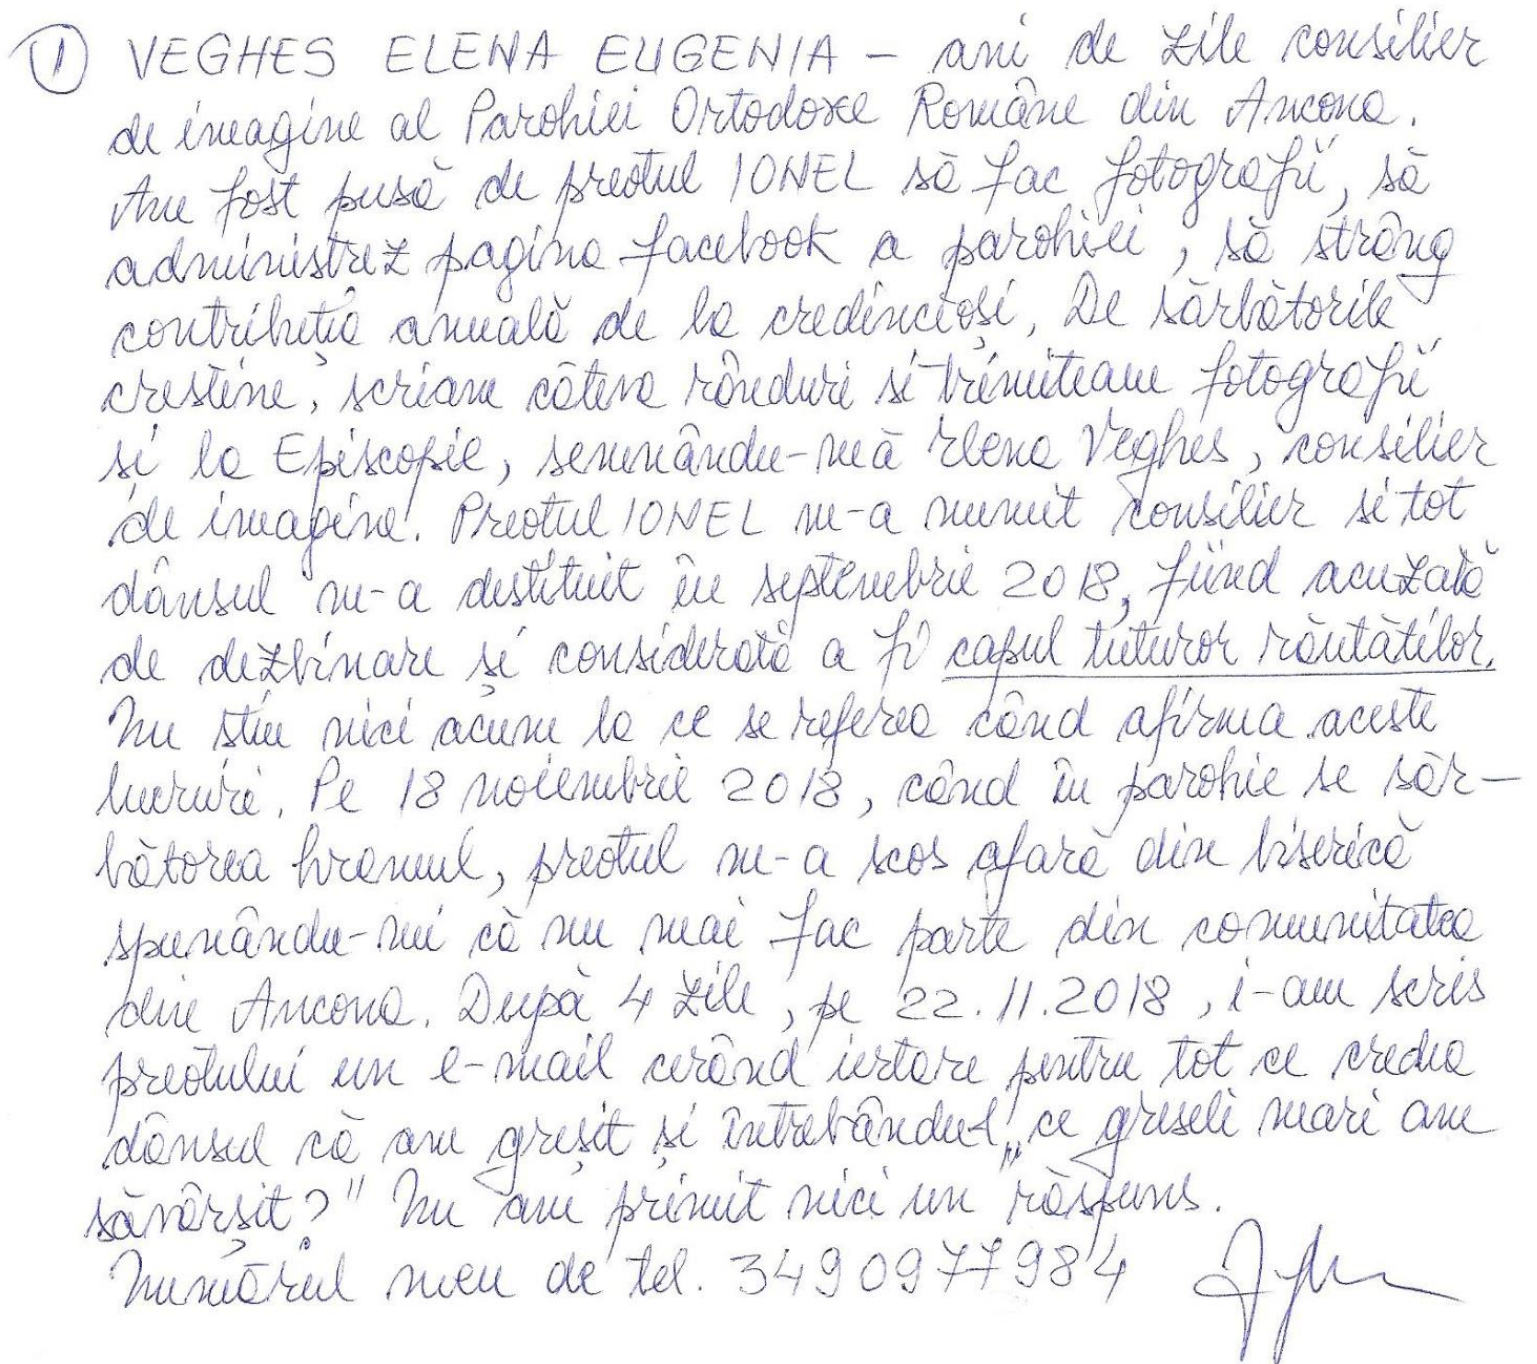 ① VEGHES ELENA EUGENIA – ani de zile consilier
de imagine al Parohiei Ortodoxe Române din Ancona.
Am fost pusă de preotul IONEL să fac fotografii, să
administrez pagina facebook a parohiei, să strâng
contribuția anuală de la credincioși. De sărbătorile
crestine, scriam câteva rânduri si trimiteam fotografii
si la Episcopie, semnându-mă Elena Veghes, consilier
de imagine. Preotul IONEL m-a numit consilier si tot
dânsul m-a destituit în septembrie 2018, fiind acuzată
de dezbinare și considerată a fi capul tuturor răutătilor.
Nu stiu nici acum la ce se referea când afirma aceste
lucruri. Pe 18 noiembrie 2018, când în parohie se săr–
bătorea hramul, preotul m-a scos afară din biserică
spunându-mi că nu mai fac parte din comunitatea
din Ancona. După 4 zile, pe 22.11.2018, i-am scris
preotului un e-mail cerând iertare pentru tot ce credea
dânsul că am greșit și întrebându-l „ce greseli mari am
săvârșit?" Nu am primit nici un răspuns.
Numărul meu de tel. 3490977984